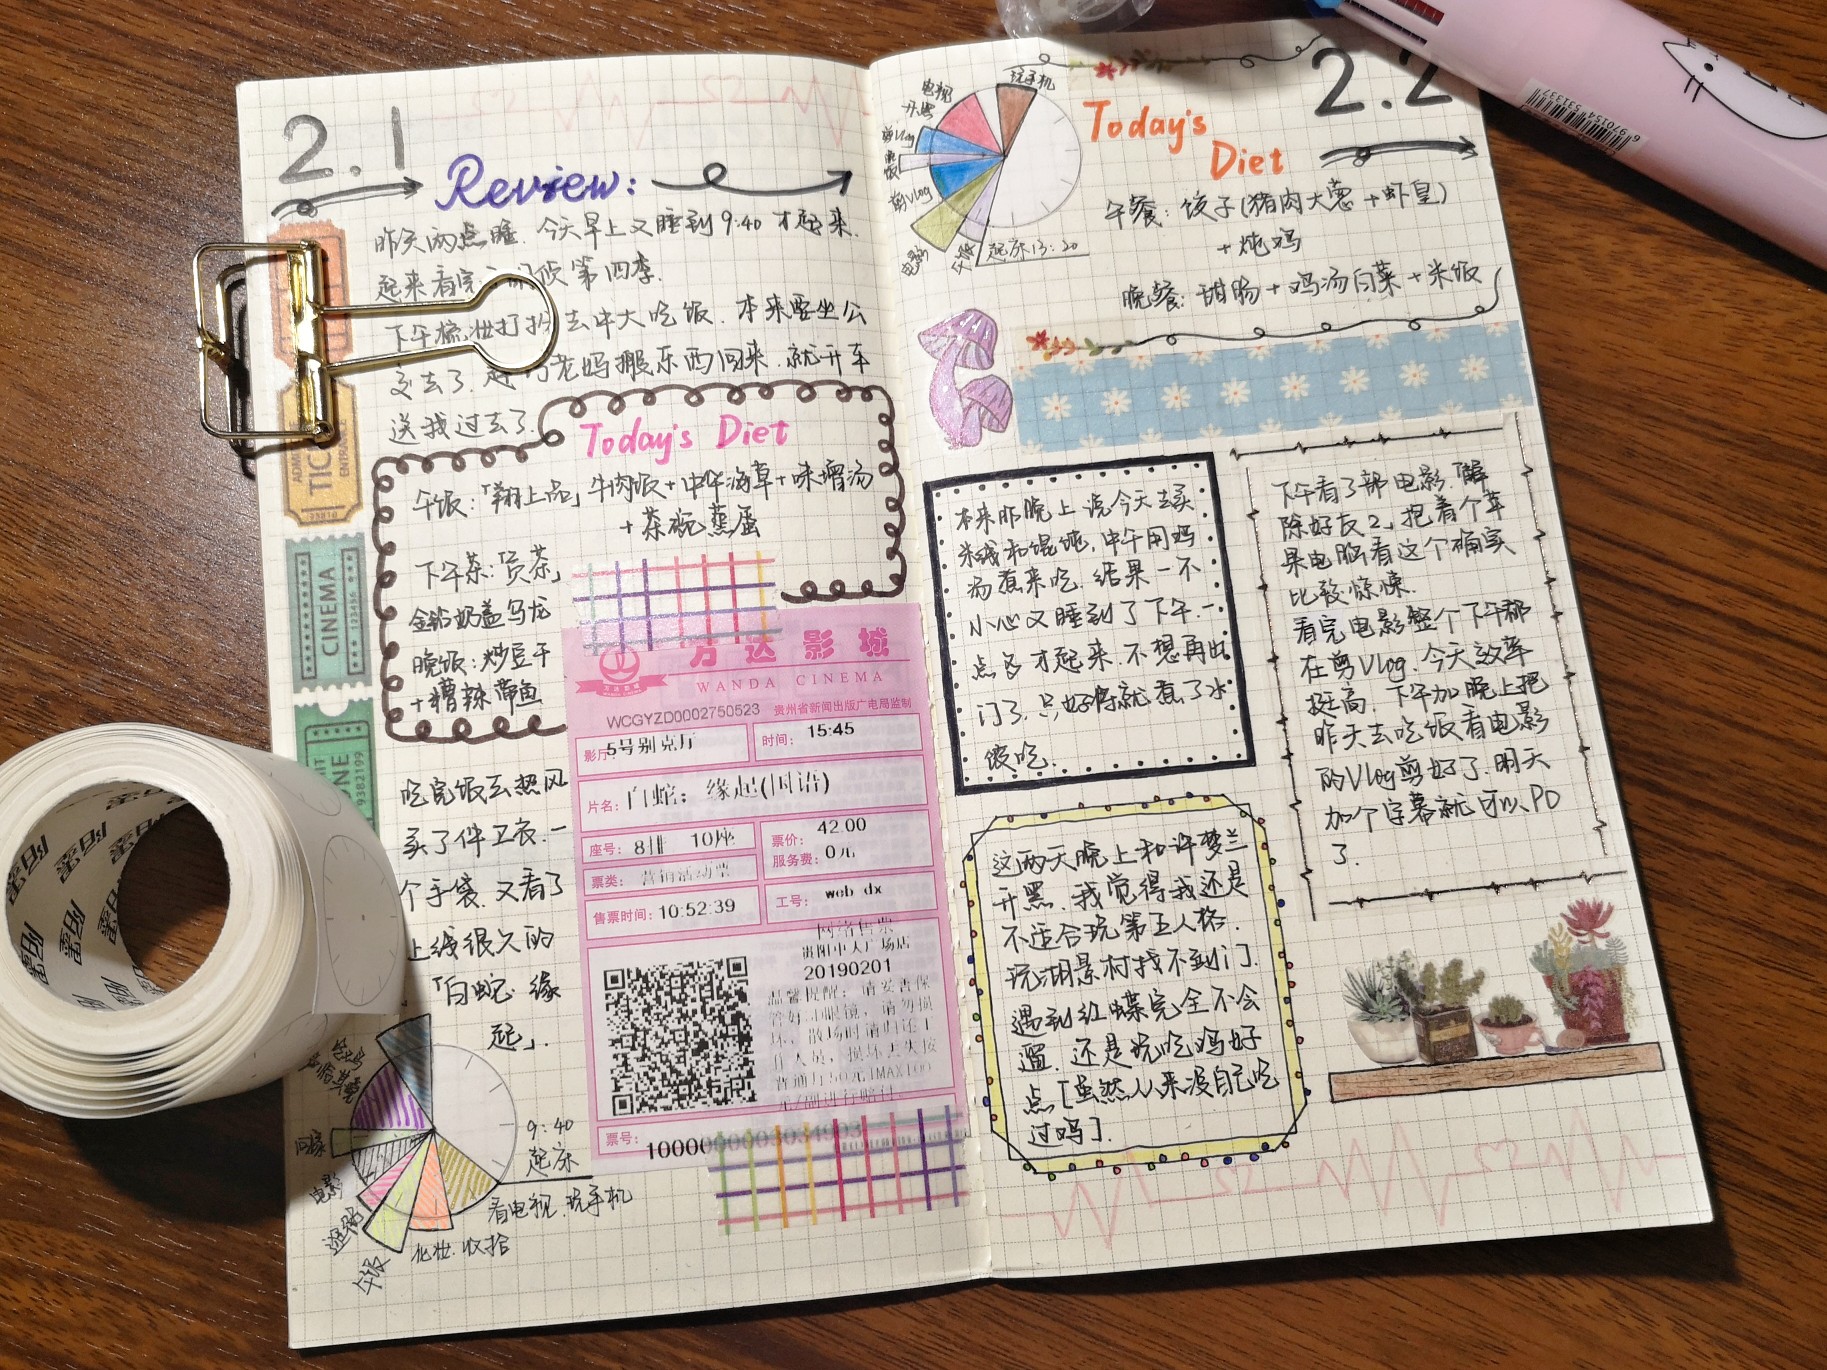 2.1
Review:
昨天两点睡.今天早上又睡到9:40才起来.
起来看完 第四季.
下午梳妆打扮去中大吃饭.本来要坐公
交去了. 老妈搬东西回来.就开车
送我过去了.
Today's Diet
午饭:「翔上品」牛肉饭+中华海草+味增汤
+茶碗蒸蛋
下午茶:「贡茶」
金铂奶盖乌龙
晚饭:炒豆干
+糟辣带鱼
TIC
CINEMA
123456
9382199
万达影城
WANDA CINEMA
WCGYZD0002750523 贵州省新闻出版广电局监制
影厅: 5号别克厅
时间: 15:45
片名: 白蛇: 缘起(国语)
座号: 8排 10座
票价: 42.00
服务费: 0元
票类: 营销活动票
售票时间: 10:52:39
工号: web dx
网络售票
贵阳中大广场店
20190201
温馨提醒: 请妥善保
管好3D眼镜, 请勿损
坏, 散场时请归还工
作人员, 损坏丢失按
票号:
吃完饭去热风
买了件卫衣.一
个手袋.又看了
上线很久的
「白蛇:缘
起」.
9:40
起床
看电视.玩手机
化妆.收拾
午饭
逛街
电影
回家
阳墨
阳墨
阳墨
阳墨
2.2
Today's
Diet
玩手机
电视
开黑
剪Vlog
晚饭
剪Vlog
电影
午餐
起床13:20
午餐:饺子(猪肉大葱+虾皇)
+炖鸡
晚餐:甜肠+鸡汤白菜+米饭
本来昨晚上说今天去买
米线和馄饨,中午用鸡
汤煮来吃.结果一不
小心又睡到了下午.一
点多才起来.不想再出
门了.只好将就煮了水
饺吃.
下午看了部电影.「解
除好友2」抱着个苹
果电脑看这个确实
比较惊悚.
看完电影整个下午都
在剪Vlog.今天效率
挺高.下午加晚上把
昨天去吃饭看电影
的Vlog剪好了.明天
加个字幕就可以PO
了.
这两天晚上和许梦兰
开黑.我觉得我还是
不适合玩第五人格.
玩湖景村找不到门.
遇到红蝶完全不会
遛.还是玩吃鸡好
点[虽然从来没自己吃
过鸡].
6970154
531337